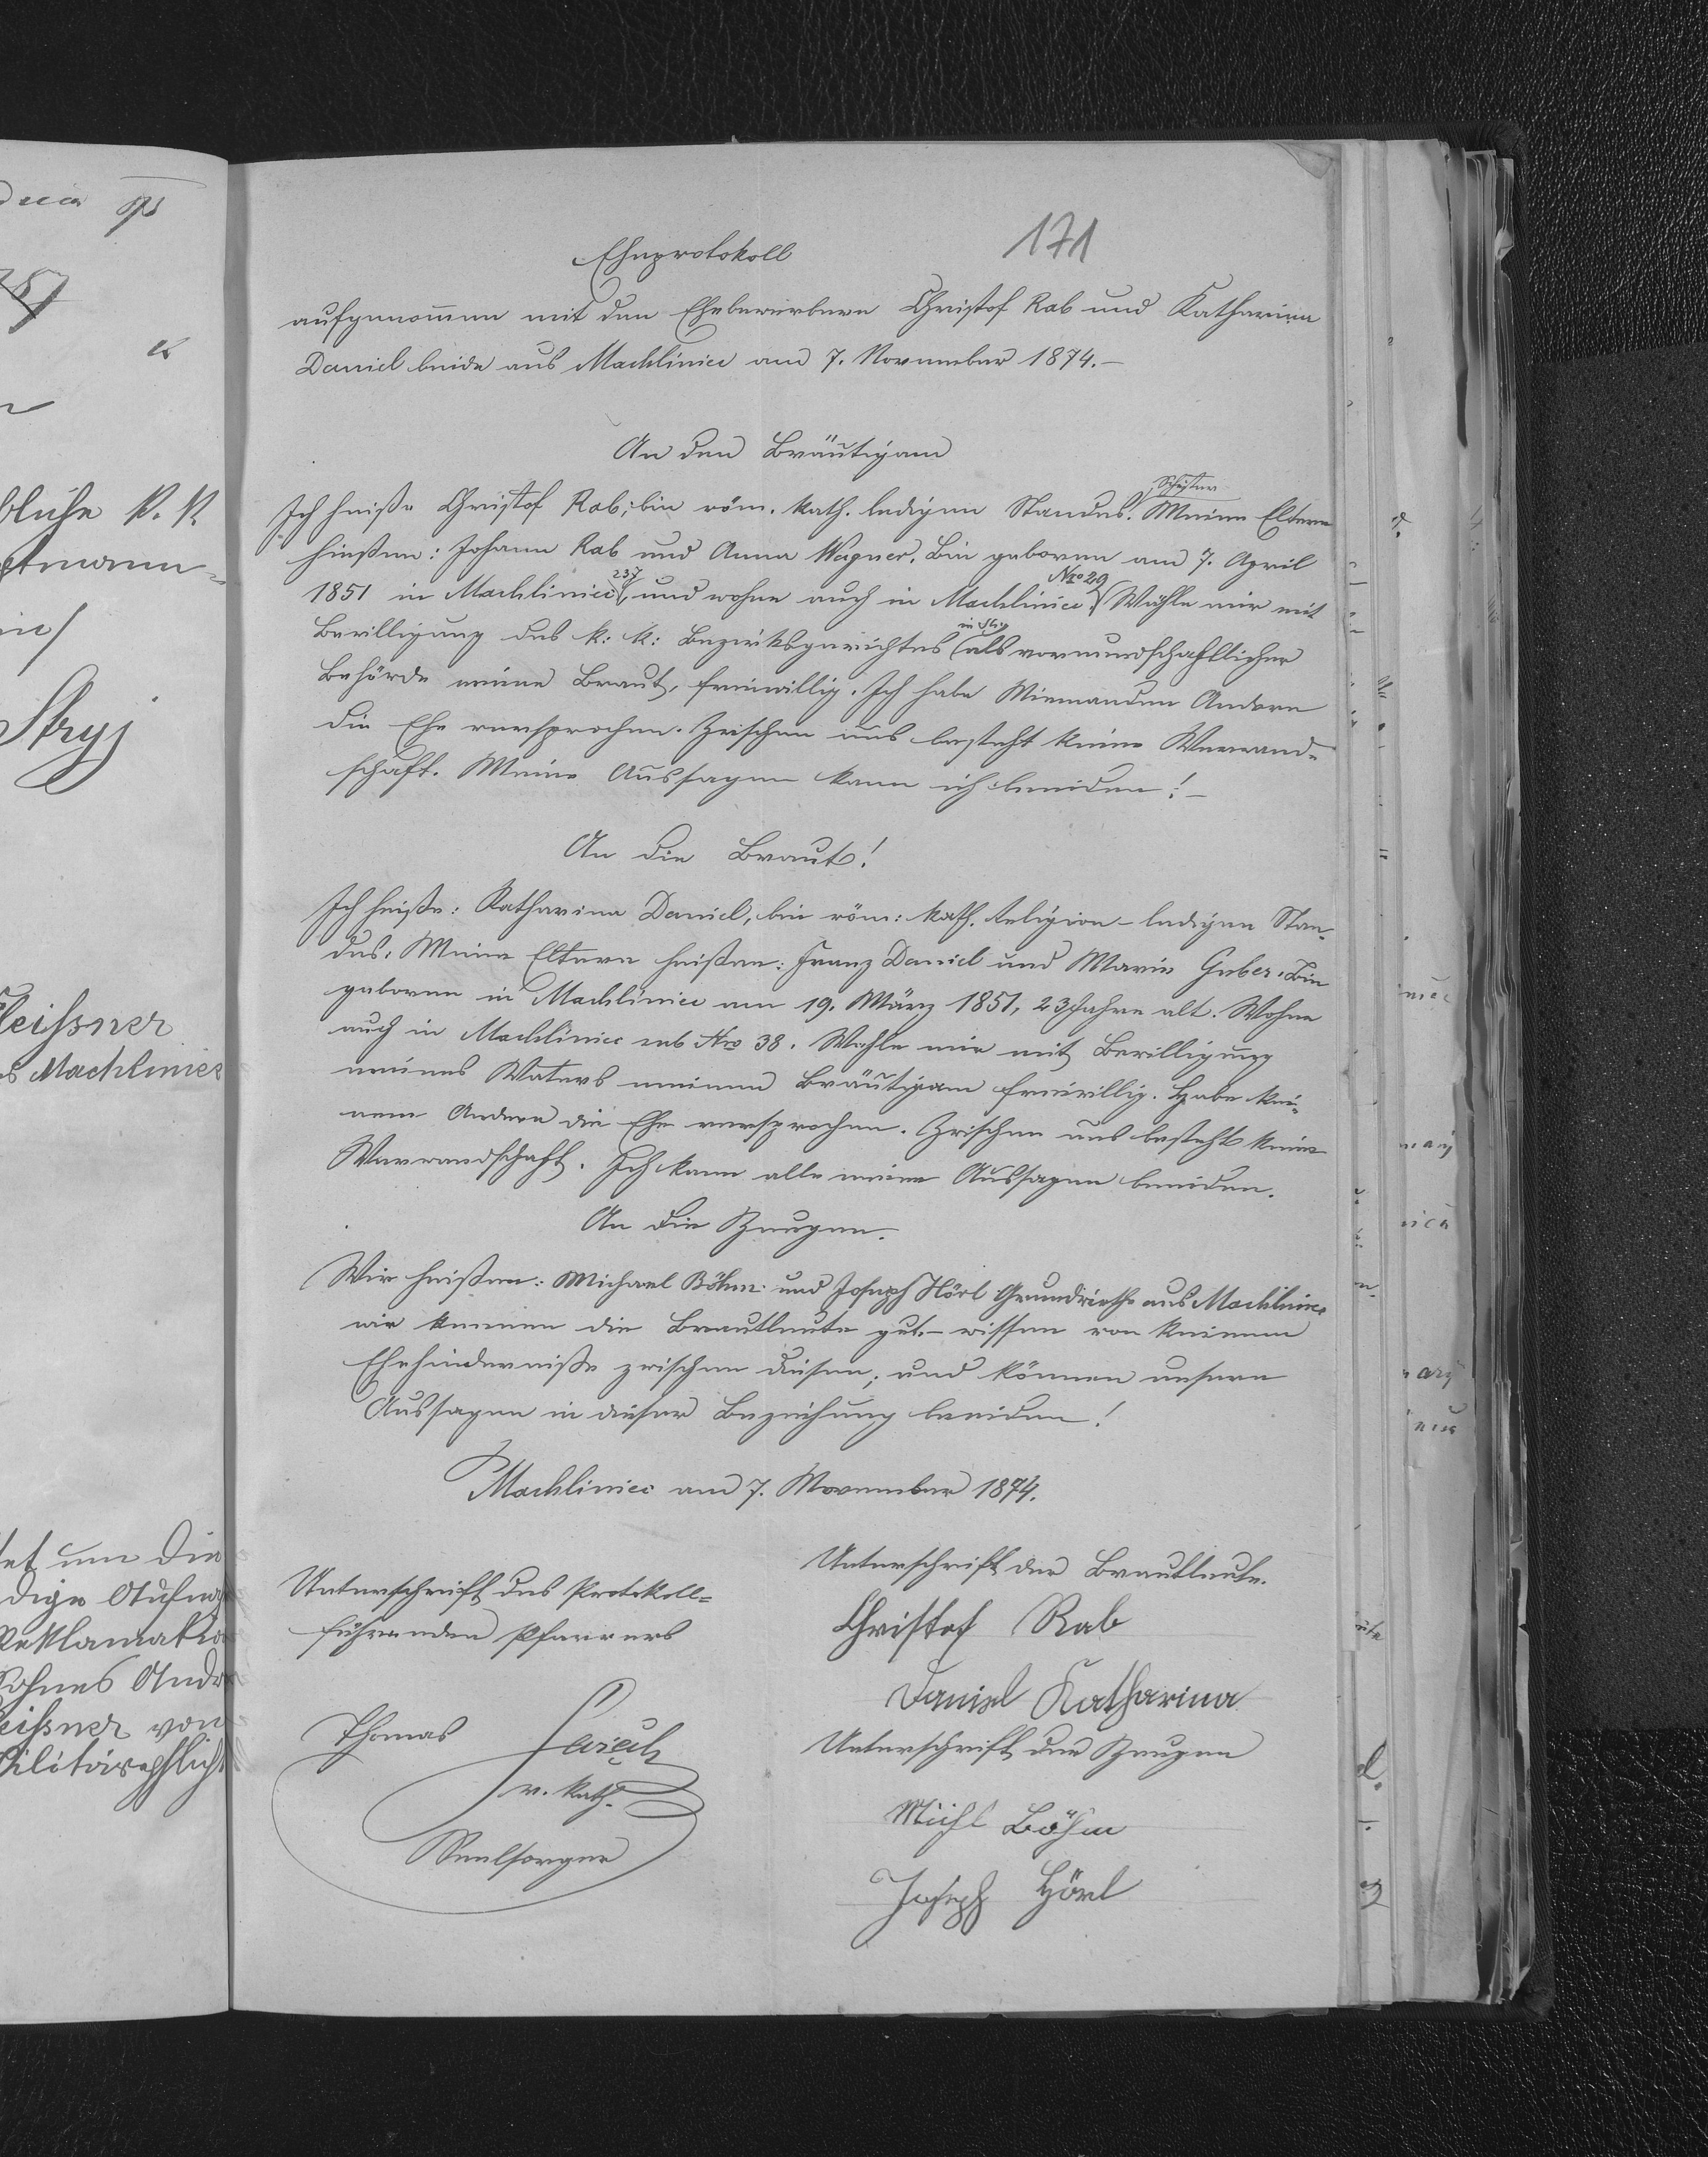 171
Eheprotokoll
aufgenommen mit den Ehebewerbern Christof Rab und Katharina
Daniel beide aus Machliniec am 7. November 1874.–
An den Bräutigam
Schuster
Ich heiße Christof Rab; bin röm. kath. ledigen Standes. Meine Eltern
hießen: Johann Rab und Anna Wagner. Bin geboren am 7. April
237 Nro 29
1851 in Machliniec, und wohne auch in Machliniec. Wähle mir mit
in Stryj
Bewilligung des k: k: Bezirksgerichtes als vormundschaftlicher
Behörde meine Braut, freiwillig. Ich habe Niemanden Andern
die Ehe versprochen. Zwischen uns besteht keine Verwand-
schaft. Meine Aussagen kann ich beeiden!–
An die Braut!
Ich heiße: Katharina Daniel, bin röm: kath. Religion – ledigen Stan-
des. Meine Eltern heißen: Franz Daniel und Marie Gruber. Bin
geboren in Machliniec am 19. März 1851, 23 Jahre alt. Wohne
auch in Machliniec sub Nro 38. Wähle mir mit Bewilligung
meines Vaters meinen Bräutigam freiwillig. Habe kei-
nem Andern die Ehe versprochen. Zwischen uns besteht keine
Verwandschaft. Ich kann alle meine Aussagen beeiden.
An die Zeugen.
Wir heißen: Michael Böhm und Joseph Hörl Grundwirthe aus Machliniec
wir kennen die Brautleute gut – wissen von keinem
Ehehinderniße zwischen diesen; und können unsere
Aussagen in dieser Beziehung beeiden!
Machliniec am 7. November 1874.
Unterschrift des Protokoll=
führenden Pfarrers
Thomas
r. kath.
Seelsorger
Unterschrift der Brautleute.
Christof Rab
Daniel Katharina
Unterschrift der Zeugen
Michl Böhm
Joseph Hörl
Stryj
Meißner
Machliniec